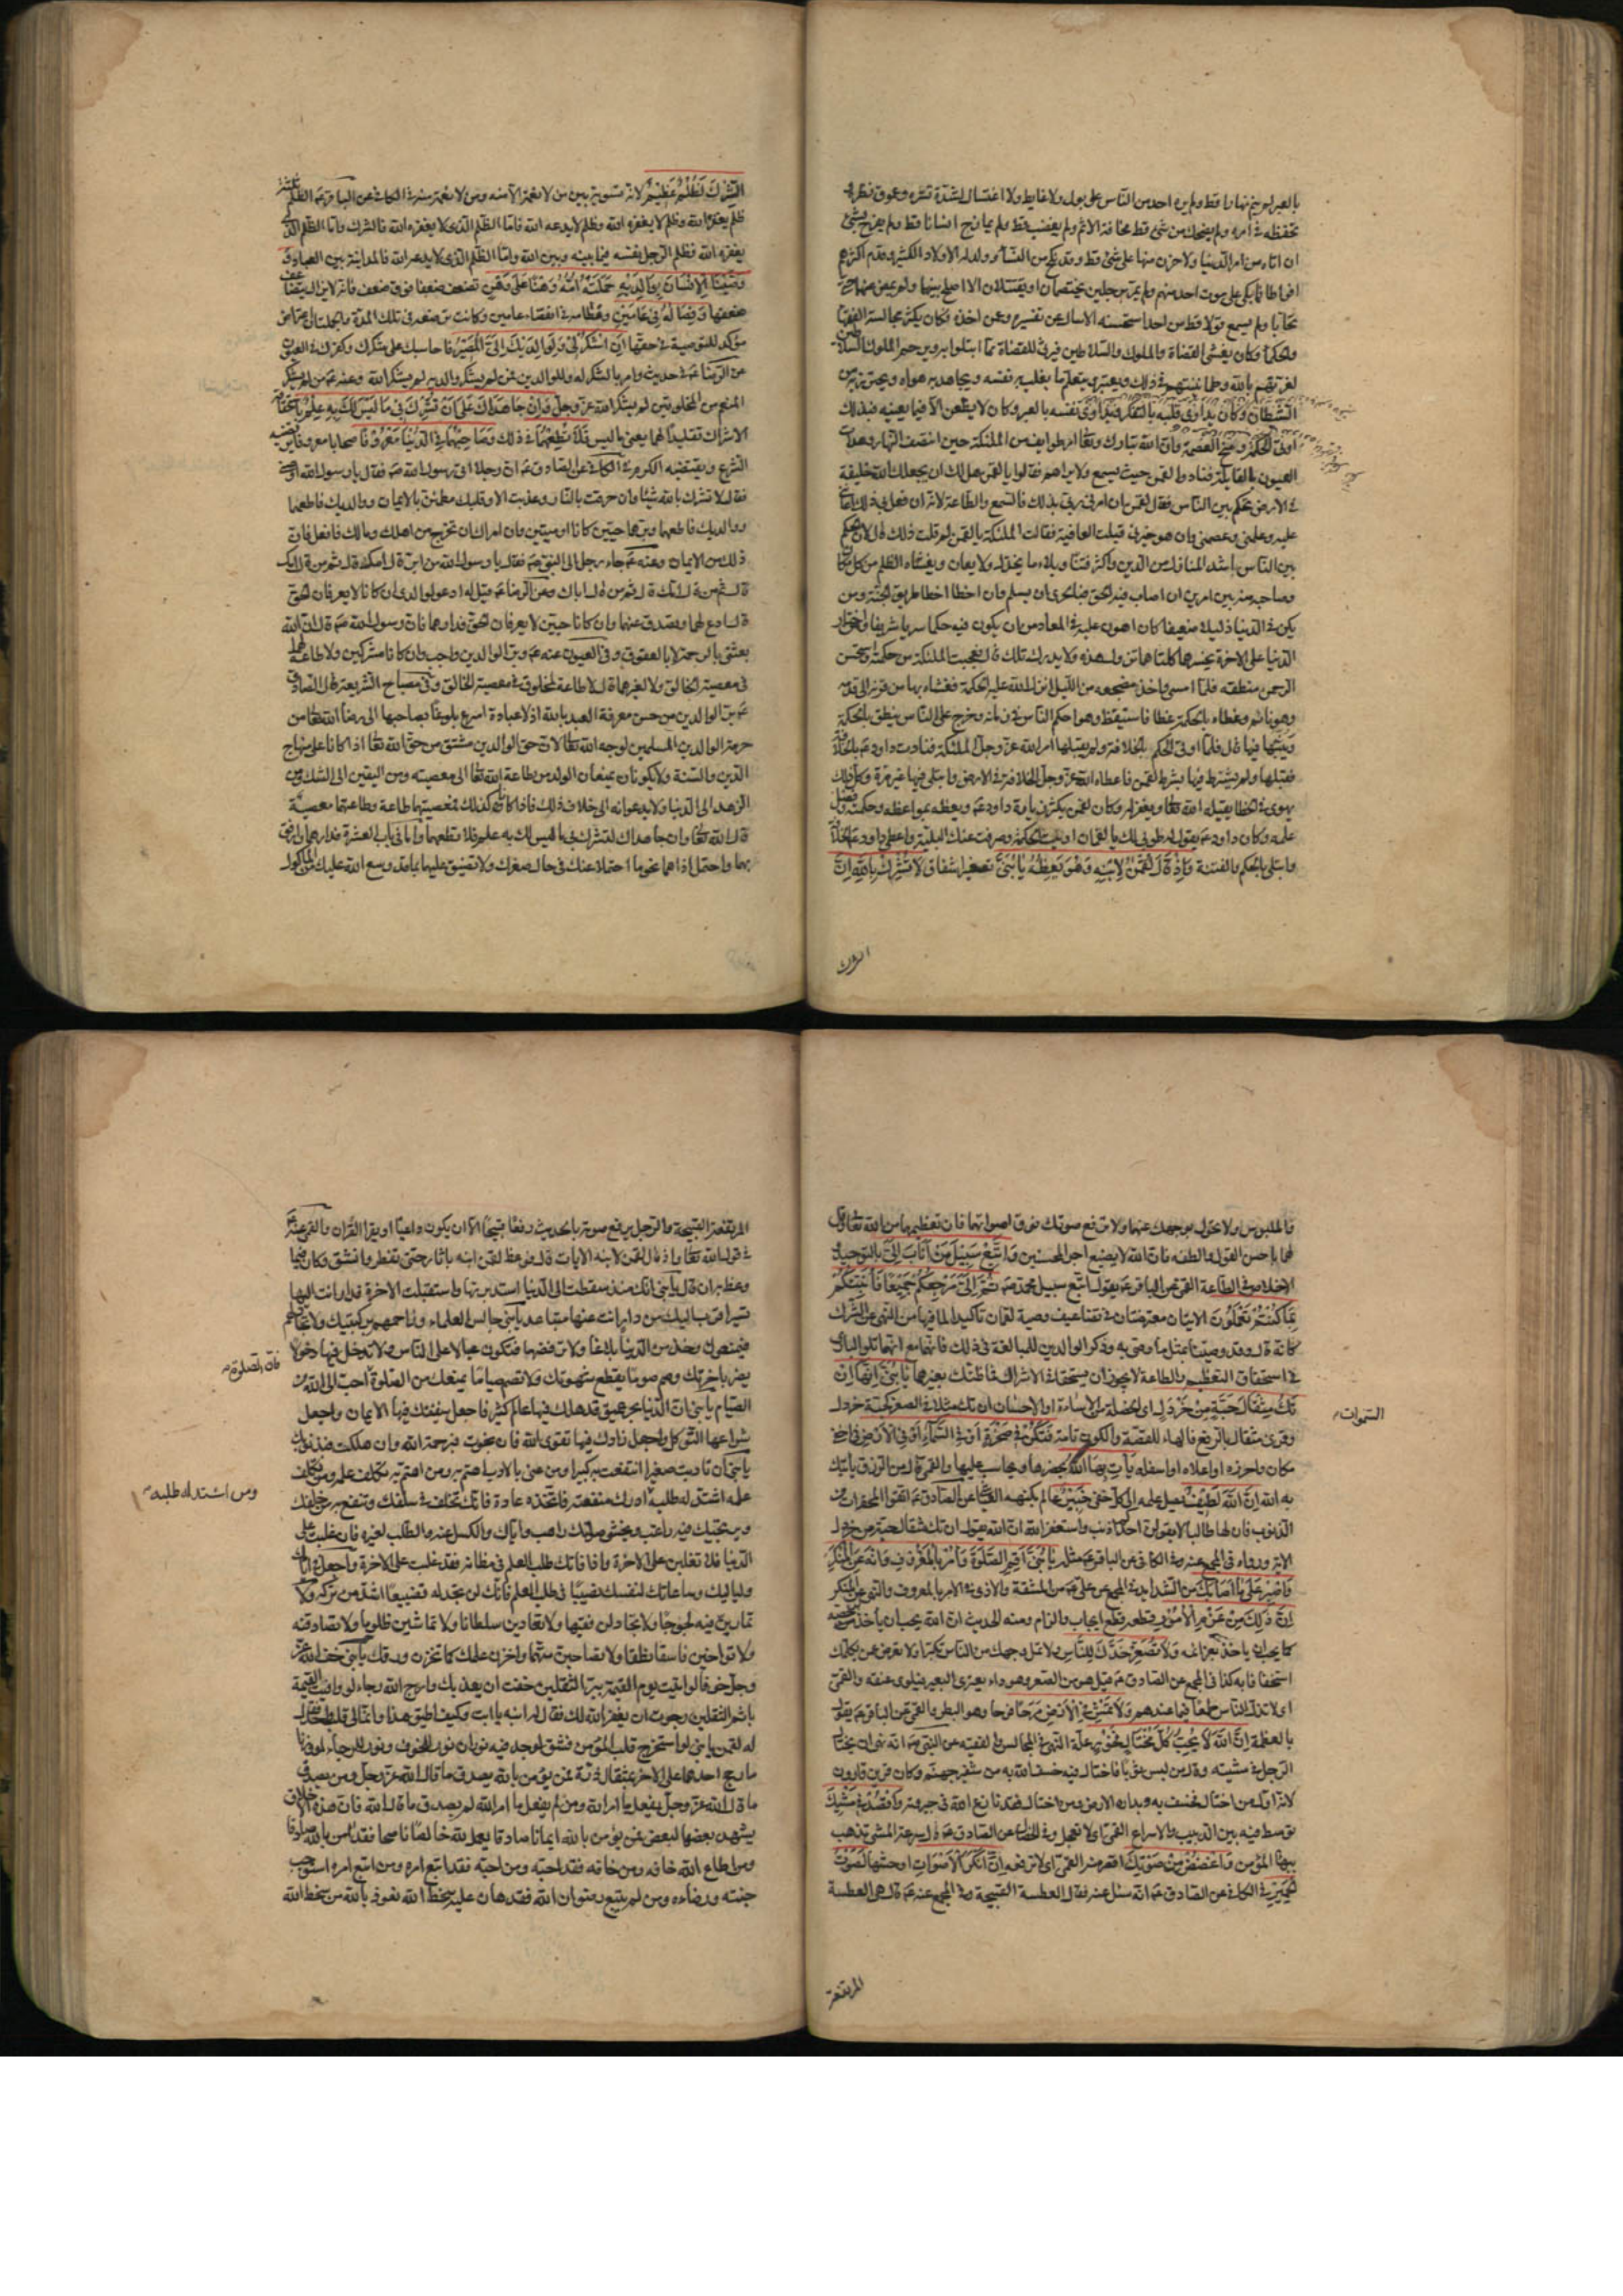 بالعبر لم ينم نهارا قط ولم يره احد من الناس على بول ولا غايط ولا اغتسال لشدة تستره وعموق نظره و
تحفظه في امره ولم يضحك من شئ قط مخافة الاثم ولم يغضب قط ولم يمازح انسانا قط ولم يفرح بشئ
ان اتاه من امر الدنيا ولا حزن منها على شئ قط وقد نكح من النساء وولد له الاولاد الكثير وقدم اكثرهم
افراطا فما بكى على موت احد منهم ولم يمر برجلين يختصمان او يقتتلان الا اصلح بينهما ولم يمض عنهما حتى
تحابا ولم يسمع قولا قط من احد استحسنه الا سال عن تفسيره وعمن اخذه وكان يكثر مجالسة الفقهاء
والحكماء وكان يغشى القضاة والملوك والسلاطين فيرثي للقضاة مما ابتلوا به ويرحم الملوك والسلاطين
لغرتهم بالله وطمانينتهم في ذلك ويعتبر ويتعلم ما يغلب به نفسه ويجاهد به هواه ويحترز به من
الشيطان وكان يداوي قلبه بالتفكر ويداوي نفسه بالعبر وكان لا يظعن الا فيما يعينه فبذلك
اوتي الحكمة ومنح العصمة وان الله تبارك وتعالى امر طوايف من الملئكة حين انتصف النهار وهدات
العيون بالقايلة فنادوا لقمن حيث يسمع ولا يراهم فقالوا يا لقمن هل لك ان يجعلك الله خليفة
في الارض تحكم بين الناس فقال لقمن ان امرني ربي بذلك فالسمع والطاعة لانه ان فعل بي ذلك اعانني
عليه وعلمني وعصمني وان هو خيرني قبلت العافية فقالت الملئكة يا لقمن لم قلت ذلك قال لان الحكم
بين الناس اشد المنازل من الدين واكثر فتنا وبلاء ما يخذل ولا يعان ويغشاه الظلم من كل مكان
وصاحبه منه بين امرين ان اصاب فيه الحق فبالحرى ان يسلم وان اخطا اخطا طريق الجنة ومن
يكن في الدنيا ذليلا ضعيفا كان اهون عليه في المعاد من ان يكون فيه حكما سريا شريفا ومن اختار
الدنيا على الاخرة يخسرهما كلتاهما تزول هذه ولا يدرك تلك قال فتعجبت الملئكة من حكمته واستحسن
الرحمن منطقه فلما امسى واخذ مضجعه من الليل انزل الله عليه الحكمة فغشاه بها من قرنه الى قدمه
وهو نائم وغطاه بالحكمة غطا فاستيقظ وهو احكم الناس في زمانه وخرج على الناس ينطق بالحكمة
ويبثها فيها قال فلما اوتي الحكم بالخلافة ولم يقبلها امر الله عز وجل الملئكة فنادت داود ع بالخلافة
فقبلها ولم يشترط فيها بشرط لقمن فاعطاه الله عز وجل الخلافة في الارض وابتلي فيها غير مرة وكل ذلك
يهوي في الخطا يقيله الله تعالى ويغفر له وكان لقمن يكثر زيارة داود ع ويعظه بمواعظه وحكمته وفضل
علمه وكان داود ع يقول له طوبى لك يا لقمان اوتيت الحكمة وصرفت عنك البلية واعطي داود ع الخلافة
وابتلي بالحكم والفتنة وَاِذْ قَالَ لُقْمٰنُ لِاِبْنِهِ وَهُوَ يَعِظُهُ يَا بُنَيَّ تصغير اشفاق لا تُشْرِكْ بِاللهِ اِنَّ
الشرك
الشِّرْكَ لَظُلْمٌ عَظِيمٌ لانه تسوية بين من لا نعمة الا منه ومن لا نعمة منه في الكافي عن الباقر ع الظلم ثلثة
ظلم يغفره الله وظلم لا يغفره الله وظلم لا يدعه الله فاما الظلم الذي لا يغفره الله فالشرك واما الظلم الذي
يغفره الله فظلم الرجل نفسه فيما بينه وبين الله واما الظلم الذي لا يدعه الله فالمداينة بين العباد وَ
وَصَّيْنَا الْاِنْسَانَ بِوَالِدَيْهِ حَمَلَتْهُ اُمُّهُ وَهْنًا عَلَى وَهْنٍ تضعف ضعفا فوق ضعف فانه لا يزال يتضاعف
ضعفها وَفِصَالُهُ فِي عَامَيْنِ وفطامه في انقضاء عامين وكانت ترضعه في تلك المدة والجملتان اعتراض
مؤكد للتوصية في حقها اَنِ اشْكُرْ لِي وَلِوَالِدَيْكَ اِلَيَّ الْمَصِيرُ فاحاسبك على شكرك وكفرك في العيون
عن الرضا ع في حديث وامر بالشكر له وللوالدين فمن لم يشكر والديه لم يشكر الله وعنه ع من لم يشكر
المنعم من المخلوقين لم يشكر الله عز وجل وَاِنْ جَاهَدَاكَ عَلَى اَنْ تُشْرِكَ بِي مَا لَيْسَ لَكَ بِهِ عِلْمٌ باستحقاقه
الاشراك تقليدا لهما يعني ما ليس فَلَا تُطِعْهُمَا في ذلك وَصَاحِبْهُمَا فِي الدُّنْيَا مَعْرُوفًا صحابا معروفا يرتضيه
الشرع ويقتضيه الكرم في الكافي عن الصادق ع ان رجلا اتى رسول الله ص فقال يا رسول الله اوصني
فقال لا تشرك بالله شيئا وان حرقت بالنار وعذبت الا وقلبك مطمئن بالايمان ووالديك فاطعهما
ووالديك فاطعهما وبرهما حيين كانا او ميتين وان امراك ان تخرج من اهلك ومالك فافعل فان
ذلك من الايمان وعنه ع جاء رجل الى النبي ص فقال يا رسول الله من ابر قال امك قال ثم من قال امك
قال ثم من قال امك قال ثم من قال اباك وعن الرضا ع قيل له ادعو لوالدي ان كانا لا يعرفان الحق
قال ادع لهما وتصدق عنهما وان كانا حيين لا يعرفان الحق فدارهما فان رسول الله ص قال ان الله
بعثني بالرحمة لا بالعقوق وفي العيون عنه ع وبر الوالدين واجب وان كانا مشركين ولا طاعة لهما
في معصية الخالق ولا لغيرهما فانه لا طاعة لمخلوق في معصية الخالق وفي مصباح الشريعة قال الصادق
ع بر الوالدين من حسن معرفة العبد بالله اذ لا عبادة اسرع بلوغا بصاحبها الى رضا الله تعالى من
حرمة الوالدين المسلمين لوجه الله تعالى لان حق الوالدين مشتق من حق الله تعالى اذا كانا على منهاج
الدين والسنة ولا يكونان يمنعان الولد من طاعة الله تعالى الى معصيته ومن اليقين الى الشك ومن
الزهد الى الدنيا ولا يدعوانه الى خلاف ذلك فاذا كانا كذلك فمعصيتهما طاعة وطاعتهما معصية
قال الله تعالى وان جاهداك لتشرك بي ما ليس لك به علم فلا تطعهما واما في باب العشرة فدارهما وارفق
بهما واحتمل اذاهما نحو ما احتملا عنك في حال صغرك ولا تضيق عليهما بما قد وسع الله عليك من الماكول
فالملبوس ولا تحول بوجهك عنهما ولا ترفع صوتك فوق اصواتهما فان تعظيمهما من الله تعالى وقل
لهما باحسن القول والطفه فان الله لا يضيع اجر المحسنين وَاتَّبِعْ سَبِيلَ مَنْ اَنَابَ اِلَيَّ بالتوحيد و
الاخلاص في الطاعة القمي عن الباقر ع يقول اتبع سبيل محمد ص ثُمَّ اِلَيَّ مَرْجِعُكُمْ جَمِيعًا فَاُنَبِّئُكُمْ
بِمَا كُنْتُمْ تَعْمَلُونَ الايتان معترضتان في تضاعيف وصية لقمان تاكيدا لما فيها من النهي عن الشرك
كانه قال وقد وصينا بمثل ما وصى به وذكر الوالدين للمبالغة في ذلك فانهما مع انهما تلو الباري
في استحقاق التعظيم والطاعة لا يجوز ان يستحقا في الاشراك فما ظنك بغيرهما يَا بُنَيَّ اِنَّهَا اِنْ
تَكُ مِثْقَالَ حَبَّةٍ مِنْ خَرْدَلٍ اي الخصلة من الاساءة او الاحسان ان تك مثلا في الصغر كحبة خردل
وقرئ مثقال بالرفع فالهاء للقصة والكون تامة فَتَكُنْ فِي صَخْرَةٍ اَوْ فِي السَّمَاءِ اَوْ فِي الْاَرْضِ في اخفى
السموات
مكان واحرزه او اعلاه او اسفله يَاْتِ بِهَا اللهُ يحضرها ويحاسب عليها والقمي قال من الرزق ياتيك
به الله اِنَّ اللهَ لَطِيفٌ يصل علمه الى كل خفي خَبِيرٌ عالم بكنهه العياشي عن الصادق ع اتقوا المحقرات من
الذنوب فان لها طالبا لا يقولن احدكم اذنب واستغفر الله ان الله يقول ان تك مثقال حبة من خردل
الاية ورواه في المجمع عنه وفي الكافي عن الباقر ع مثله يَا بُنَيَّ اَقِمِ الصَّلٰوةَ وَأْمُرْ بِالْمَعْرُوفِ وَانْهَ عَنِ الْمُنْكَرِ
وَاصْبِرْ عَلَى مَا اَصَابَكَ من الشدايد في المجمع عن علي ع من المشقة والاذى في الامر بالمعروف والنهي عن المنكر
اِنَّ ذٰلِكَ مِنْ عَزْمِ الْاُمُورِ قطعه قطع ايجاب والزام ومنه الحديث ان الله يحب ان يؤخذ برخصه
كما يحب ان يؤخذ بعزائمه وَلَا تُصَعِّرْ خَدَّكَ لِلنَّاسِ ولا تمل وجهك من الناس تكبرا ولا تعرض عمن يكلمك
استخفافا به كذا في المجمع عن الصادق ع قيل هو من الصعر وهو داء يعتري البعير فيلوي عنقه والقمي
اي لا تذل للناس طمعا فيما عندهم وَلَا تَمْشِ فِي الْاَرْضِ مَرَحًا فرحا وهو البطر والقمي عن الباقر ع يقول
بالعظمة اِنَّ اللهَ لَا يُحِبُّ كُلَّ مُخْتَالٍ فَخُورٍ علة النهي في المجالس والفقيه عن النبي ص انه نهى ان يختال
الرجل في مشيته وقال من لبس ثوبا فاختال فيه خسف الله به من شفير جهنم وكان قرين قارون
لانه اول من اختال فخسف به وبداره الارض ومن اختال فقد نازع الله في جبروته وَاقْصِدْ فِي مَشْيِكَ
توسط فيه بين الدبيب والاسراع القمي اي لا تعجل وفي الخصال عن الصادق ع قال سرعة المشي تذهب
ببهاء المؤمن وَاغْضُضْ مِنْ صَوْتِكَ اقصر منه القمي اي لا ترفعه اِنَّ اَنْكَرَ الْاَصْوَاتِ اوحشها لَصَوْتُ
الْحَمِيرِ في الكافي عن الصادق ع انه سئل عنه فقال العطسة القبيحة وفي المجمع عنه ع قال هي العطسة
المرتفعة
المرتفعة القبيحة والرجل يرفع صوته بالحديث رفعا قبيحا الا ان يكون داعيا او يقرا القران والقمي عنه ع
في قول الله تعالى واذ قال لقمن لابنه الايات قال فوعظ لقمن ابنه باثار حتى تفطر وانشق وكان فيما
وعظه به ان قال يا بني انك منذ سقطت الى الدنيا استدبرتها واستقبلت الاخرة فدار انت اليها
تسير اقرب اليك من دار انت عنها متباعد يا بني جالس العلماء وزاحمهم بركبتيك ولا تجادلهم
فيمنعوك وخذ من الدنيا بلاغا ولا ترفضها فتكون عيالا على الناس ولا تدخل فيها دخولا
يضر باخرتك وصم صوما يقطع شهوتك ولا تصم صياما يمنعك من الصلوة احب الى الله من
فان الصلوة
الصيام يا بني ان الدنيا بحر عميق قد هلك فيها عالم كثير فاجعل سفينتك فيها الايمان واجعل
شراعها التوكل واجعل زادك فيها تقوى الله فان نجوت فبرحمة الله وان هلكت فبذنوبك
يا بني ان تادبت صغيرا انتفعت به كبيرا ومن عنى بالادب اهتم به ومن اهتم به تكلف علمه ومن تكلف
علمه اشتد له طلبه ادرك منفعته فاتخذه عادة فانك تخلف في سلفك وتنفع به من خلفك
ومن اشتد له طلبه
ويرتجيك فيه راغب ويخشى صولتك راهب واياك والكسل عنه والطلب لغيره فان غلبت على
الدنيا فلا تغلبن على الاخرة واذا فاتك طلب العلم في مظانه فقد غلبت على الاخرة واجعل في ايامك
ولياليك وساعاتك لنفسك نصيبا في طلب العلم فانك لن تجد له تضييعا اشد من تركه ولا
تمارين فيه لجوجا ولا تجادلن فقيها ولا تعادين سلطانا ولا تماشين ظلوما ولا تصادقنه
ولا تواخين فاسقا نطفا ولا تصاحبن متهما واخزن علمك كما تخزن ورقك يا بني خف الله عز
وجل خوفا لو اتيت يوم القيمة ببر الثقلين خفت ان يعذبك وارج الله رجاء لو وافيت القيمة
باثم الثقلين رجوت ان يغفر الله لك فقال له ابنه يا ابت وكيف اطيق هذا وانما لي قلب واحد فقال
له لقمن يا بني لو استخرج قلب المؤمن فشق لوجد فيه نوران نور للخوف ونور للرجاء لو وزنا
ما رجح احدهما على الاخر بمثقال ذرة فمن يؤمن بالله يصدق ما قال الله عز وجل ومن يصدق
ما قال الله عز وجل يفعل ما امر الله ومن لم يفعل ما امر الله لم يصدق ما قال الله فان هذه الاخلاق
يشهد بعضها لبعض فمن يؤمن بالله ايمانا صادقا يعمل لله خالصا ناصحا فقد امن بالله صادقا
ومن اطاع الله خافه ومن خافه فقد احبه ومن احبه فقد اتبع امره ومن اتبع امره استوجب
جنته ورضاءه ومن لم يتبع رضوان الله فقد هان عليه سخط الله نعوذ بالله من سخط الله